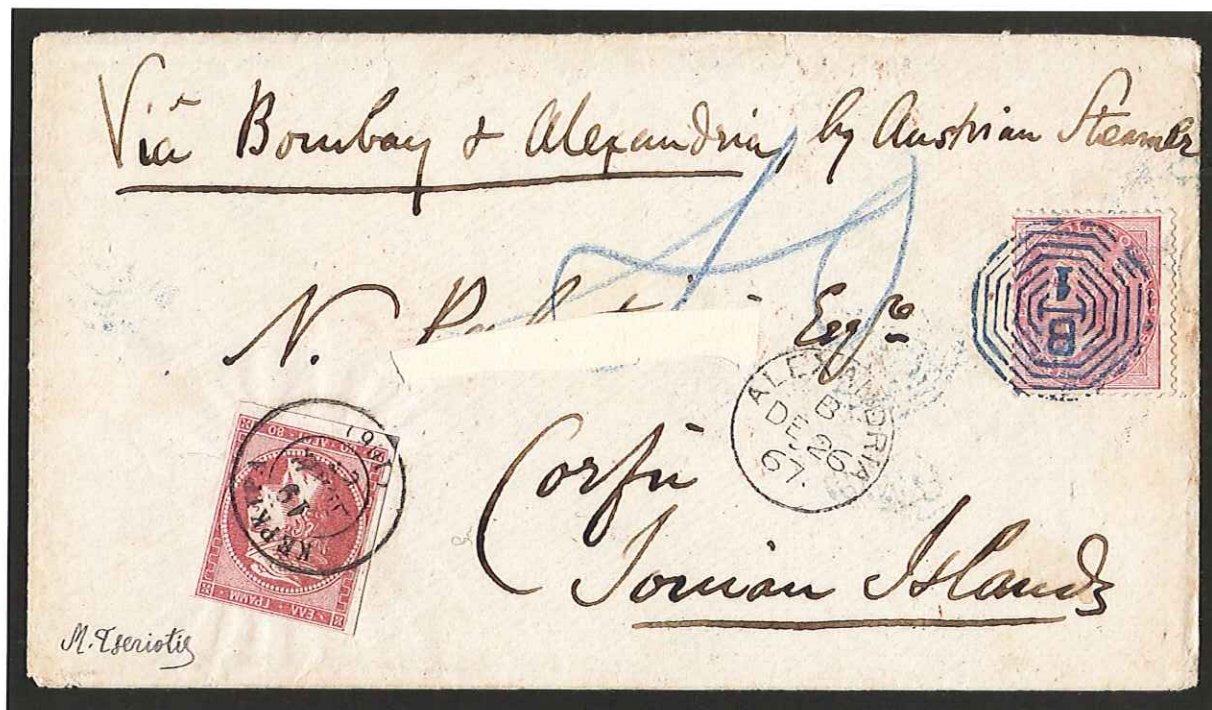 Via Bombay & Alexandria, by Austrian Steamer
N. Esqre
1
B
ALEXANDRIA
B
DE 26
67.
Corfu
Ionian Islands
80 ΛΕΠ 80
ΚΕΡΚΥΡΑ
19
ΕΛΛ ΓΡΑΜΜ
M. Tseriotis